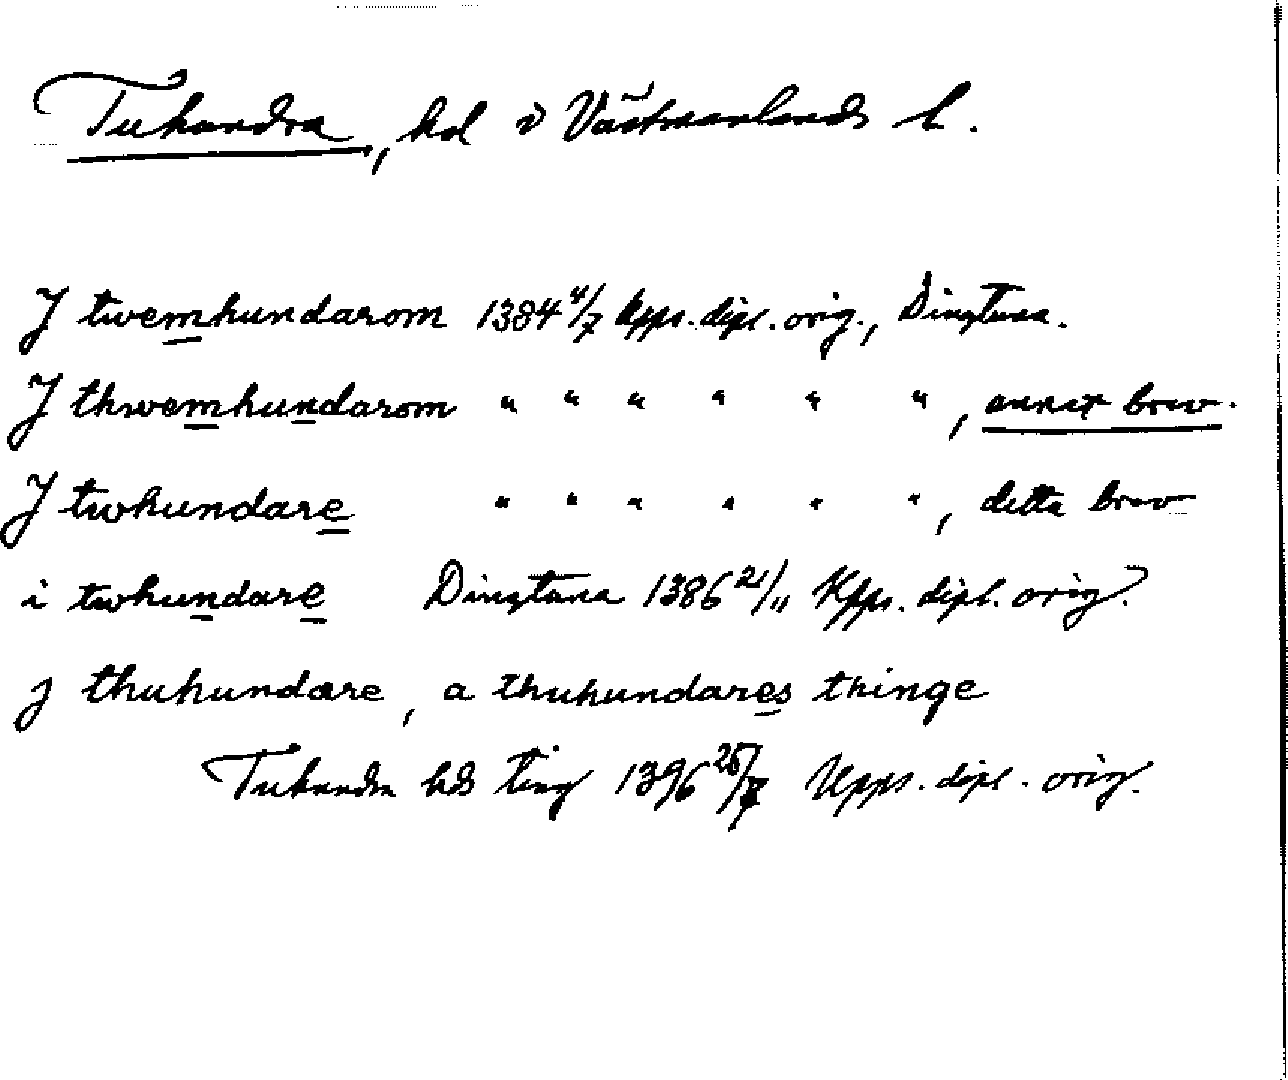 Tuhundra, hd i Västmanlands l.
J twemhundarom 1384 4/7 Upps. dipl. orig., Dingtuna.
J thwemhundarom " " " " " ", annat brev.
J twhundare " " " " " ", detta brev
i twhundare Dingtuna 1386 21/11 Upps. dipl. orig.
j thuhundare, a thuhundares thinge
Tuhundra hds ting 1396 25/7 Upps. dipl. orig.